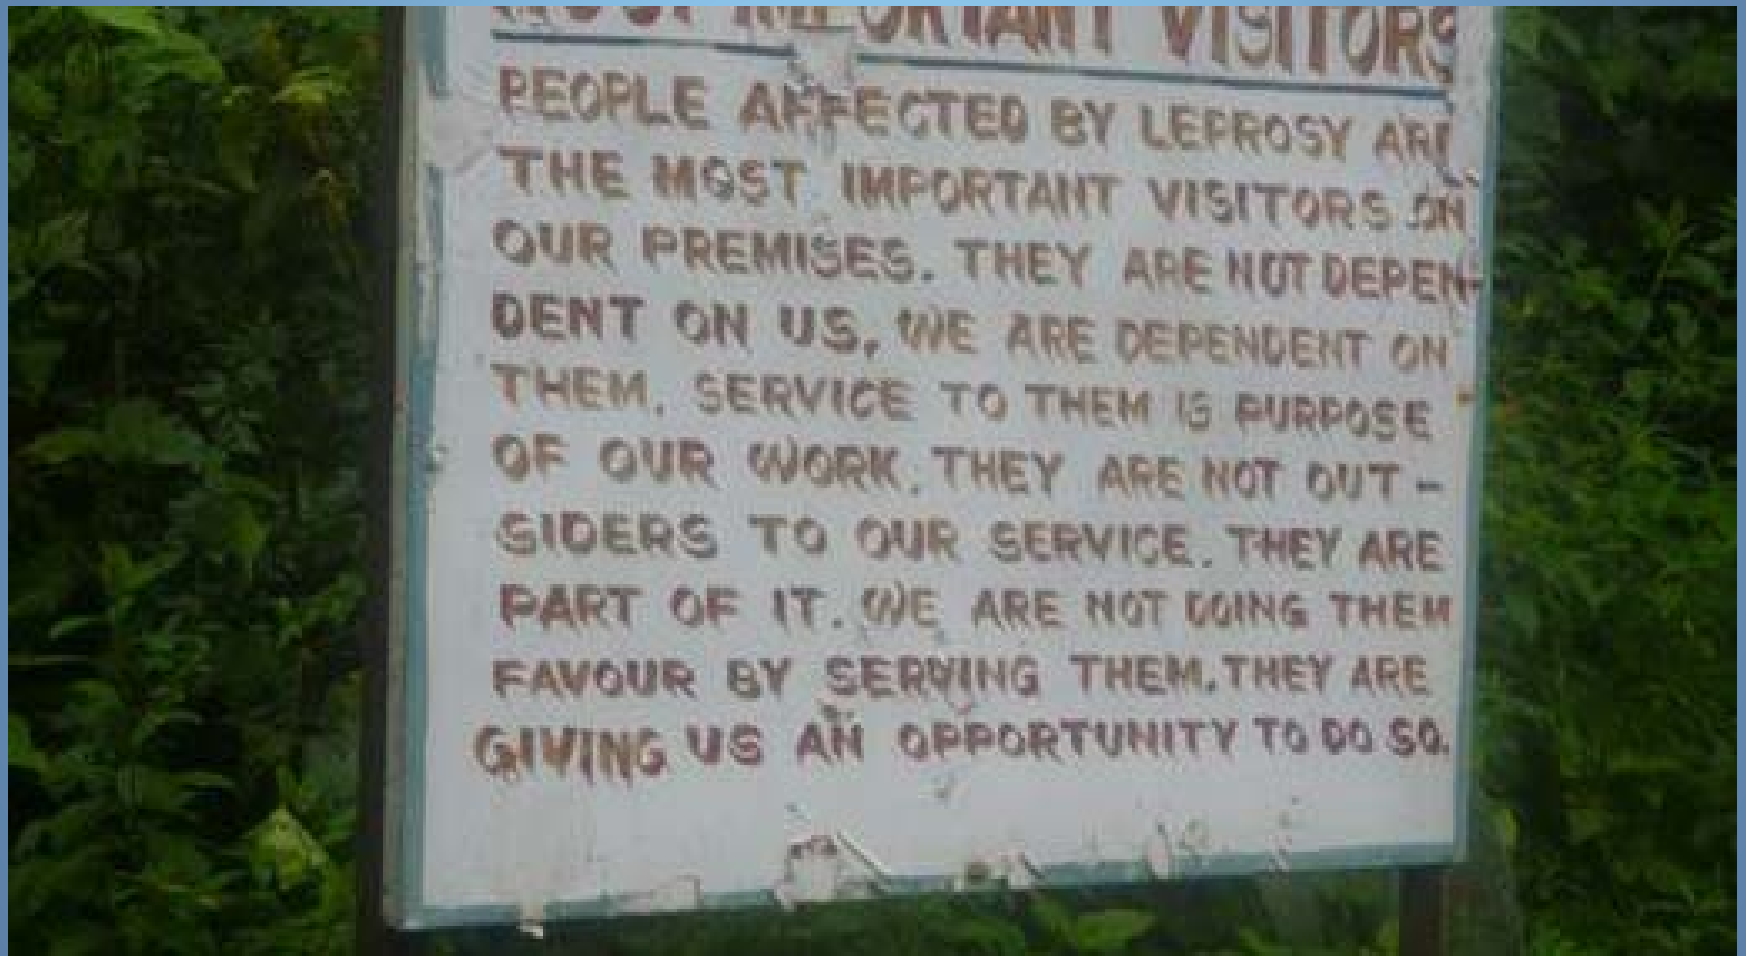 MOST IMPORTANT VISITORS
PEOPLE AFFECTED BY LEPROSY ARE
THE MOST IMPORTANT VISITORS ON
OUR PREMISES. THEY ARE NOT DEPEN-
DENT ON US, WE ARE DEPENDENT ON
THEM. SERVICE TO THEM IS PURPOSE
OF OUR WORK. THEY ARE NOT OUT-
SIDERS TO OUR SERVICE. THEY ARE
PART OF IT. WE ARE NOT DOING THEM
FAVOUR BY SERVING THEM. THEY ARE
GIVING US AN OPPORTUNITY TO DO SO.